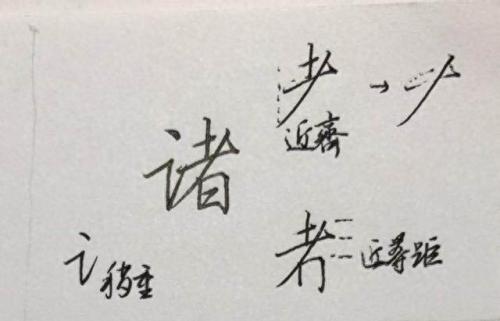 耂 →
近齊
诸
讠稍重
者 近等距